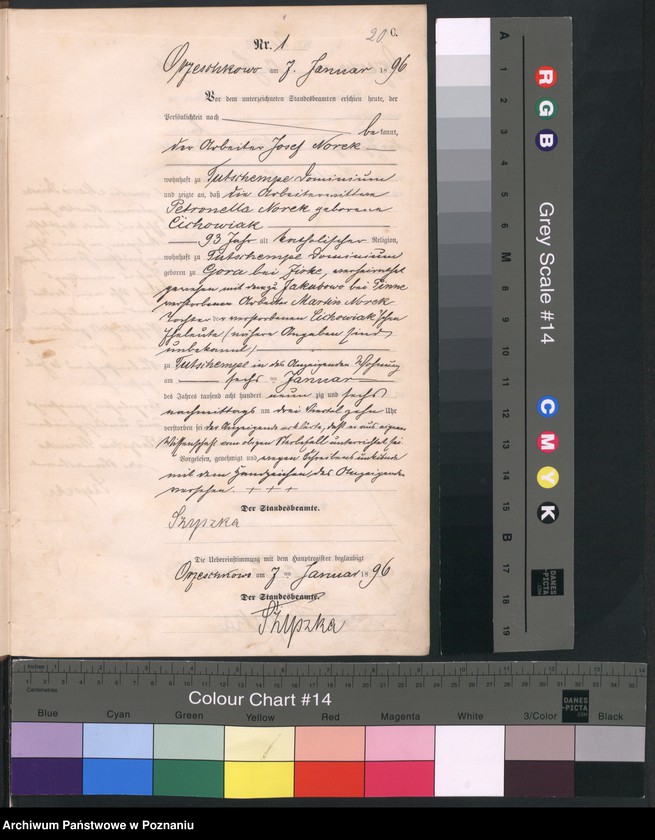 20 C.
Nr. 1
Orzeschkowo am 7. Januar 1896
Vor dem unterzeichneten Standesbeamten erschien heute, der
Persönlichkeit nach
bekannt,
der Arbeiter Josef Norek
wohnhaft zu Tutschempe Dominium
und zeigte an, daß die Arbeiterwittwe
Petronella Norek geborene
Cichowiak
93 Jahr alt katholischer Religion,
wohnhaft zu Tutschempe Dominium
geboren zu Gora bei Zirke, verheirathet
gewesen mit dem zu Jakubowo bei Pinne
verstorbenen Arbeiter Martin Norek
Tochter der verstorbenen Cichowiak'schen
Eheleute (nähere Angaben sind
unbekannt)
zu Tutschempe in des Anzeigenden Wohnung
am sechs ten Januar
des Jahres tausend acht hundert neunzig und sechs
nachmittags um drei Viertel zehn Uhr
verstorben sei der Anzeigende erklärte, daß er aus eigener
Wissenschaft von obigem Sterbefall unterrichtet sei
Vorgelesen, genehmigt und wegen Schreibensunkunde
mit dem Handzeichen des Anzeigenden
versehen. + + +
Der Standesbeamte.
Szypzka
Die Uebereinstimmung mit dem Hauptregister beglaubigt
Orzeschkowo am 7 ten Januar 1896
Der Standesbeamte.
Szypzka
Grey Scale #14
A 1 2 3 4 5 6 M 8 9 10 11 12 13 14 15 B 17 18 19
R G B
C M Y K
DANES-PICTA
.COM
Inches
Centimetres
Colour Chart #14
DANES-PICTA
.COM
Blue Cyan Green Yellow Red Magenta White 3/Color Black
Archiwum Państwowe w Poznaniu